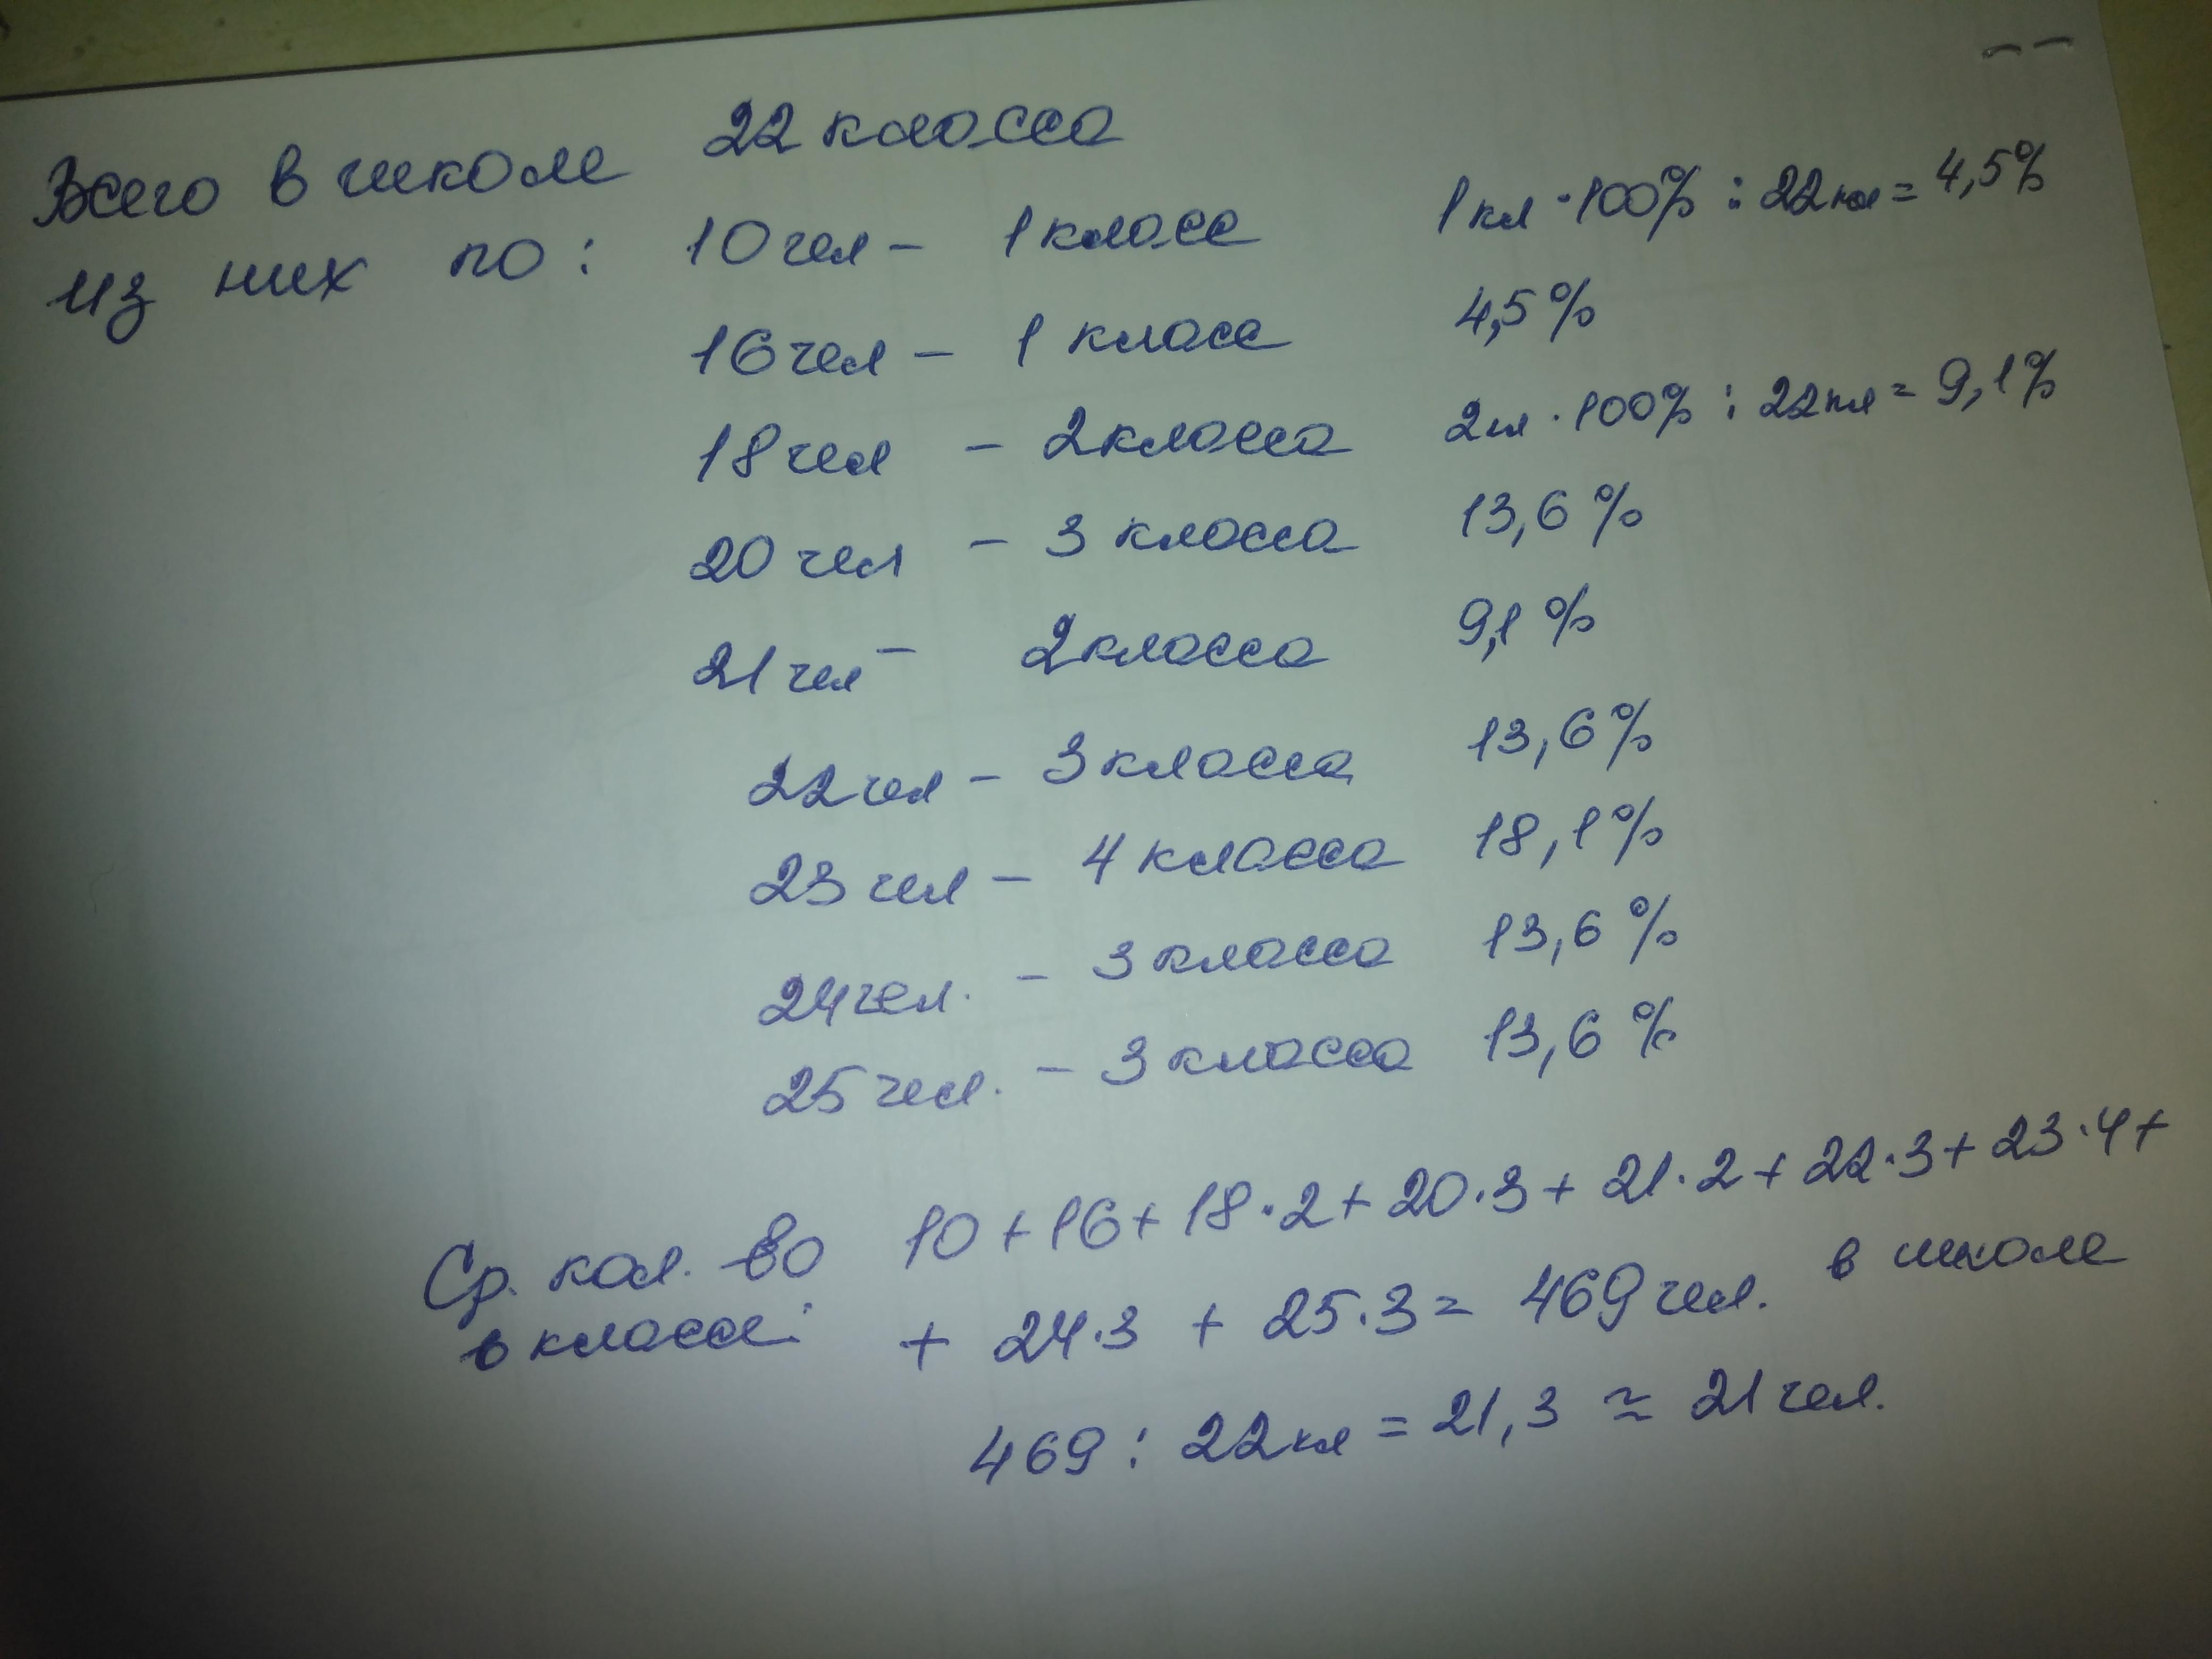 Всего в школе 22 класса
из них по: 10 чел - 1 класс 1 кл · 100% : 22 кл = 4,5%
16 чел - 1 класс 4,5 %
18 чел - 2 класса 2 кл · 100% : 22 кл = 9,1%
20 чел - 3 класса 13,6 %
21 чел - 2 класса 9,1 %
22 чел - 3 класса 13,6 %
23 чел - 4 класса 18,1 %
24 чел. - 3 класса 13,6 %
25 чел. - 3 класса 13,6 %
Ср. кол. во 10 + 16 + 18·2 + 20·3 + 21·2 + 22·3 + 23·4 +
в классе: + 24·3 + 25·3 = 469 чел. в школе
469 : 22 кл = 21,3 ≈ 21 чел.